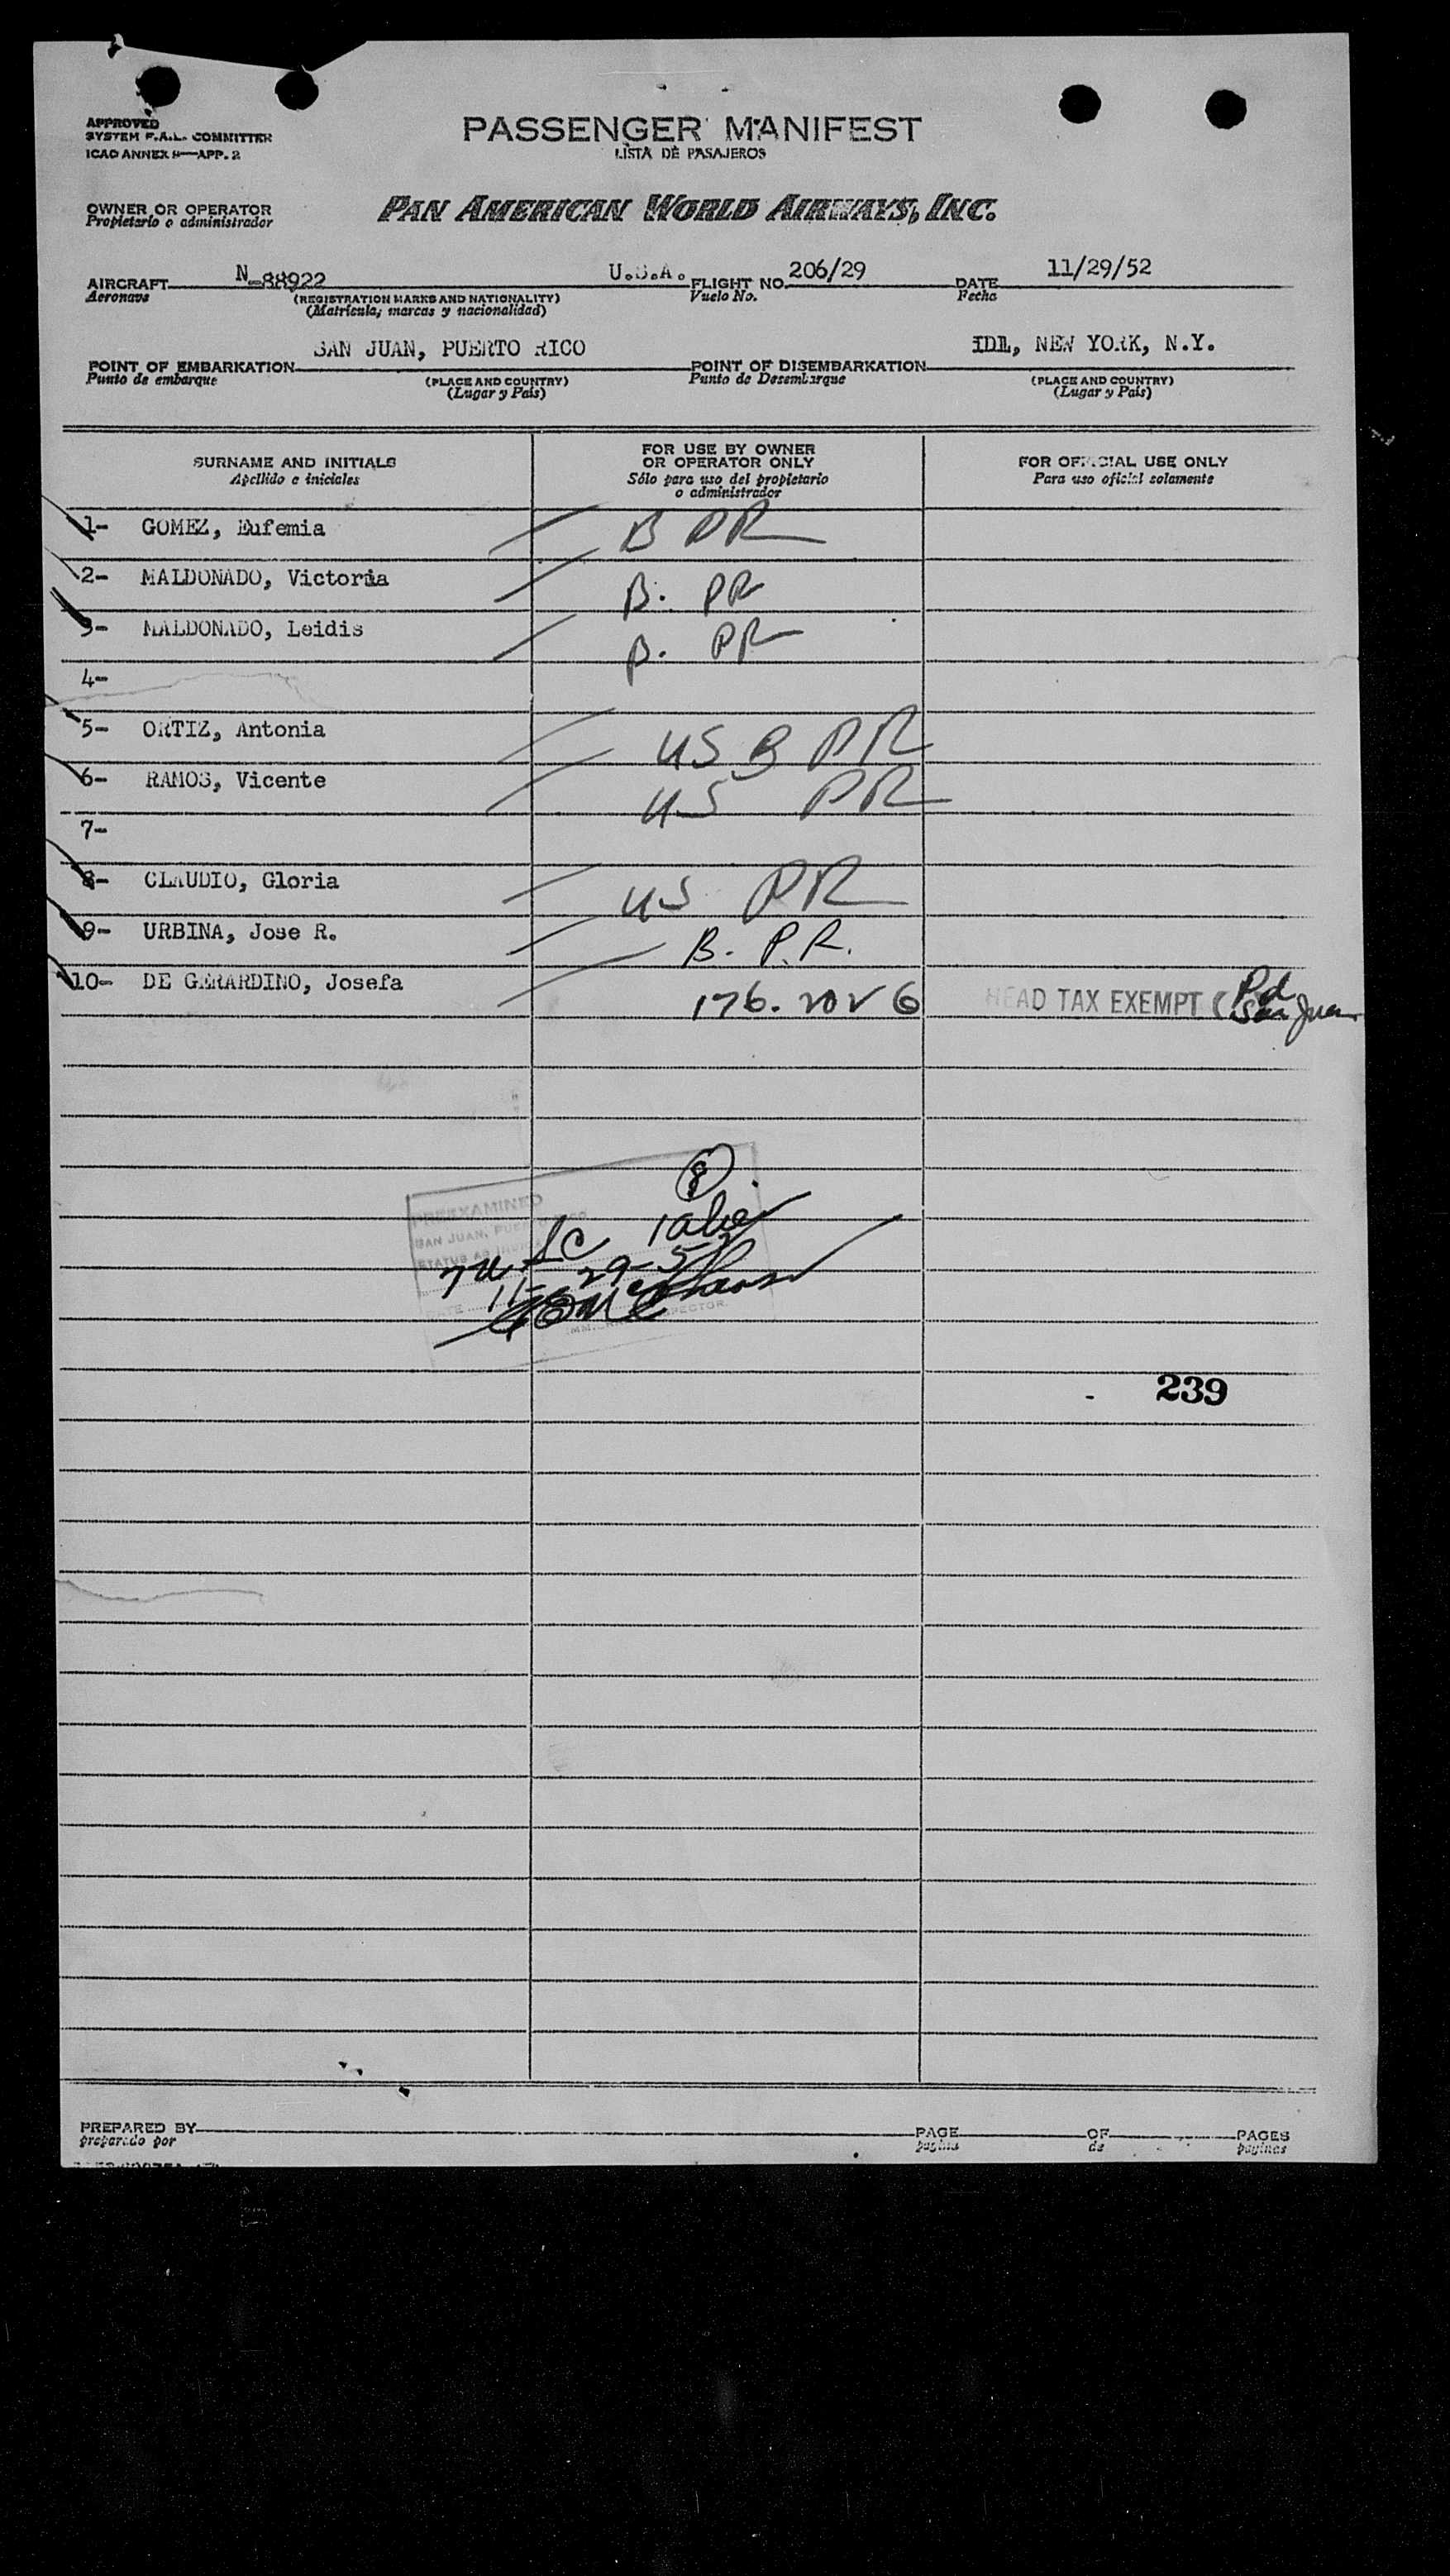 APPROVED
SYSTEM F.A.L. COMMITTEE
ICAO ANNEX 9—APP. 2
PASSENGER MANIFEST
LISTA DE PASAJEROS
OWNER OR OPERATOR
Propietario o administrador
PAN AMERICAN WORLD AIRWAYS, INC.
AIRCRAFT N-88922 U.S.A. FLIGHT NO. 206/29 DATE 11/29/52
Aeronave (REGISTRATION MARKS AND NATIONALITY) Vuelo No. Fecha
(Matrícula, marcas y nacionalidad)
POINT OF EMBARKATION SAN JUAN, PUERTO RICO POINT OF DISEMBARKATION IDL, NEW YORK, N.Y.
Punto de embarque (PLACE AND COUNTRY) Punto de Desembarque (PLACE AND COUNTRY)
(Lugar y País) (Lugar y País)
SURNAME AND INITIALS
Apellido e iniciales
FOR USE BY OWNER
OR OPERATOR ONLY
Sólo para uso del propietario
o administrador
FOR OFFICIAL USE ONLY
Para uso oficial solamente
1- GOMEZ, Eufemia B PR
2- MALDONADO, Victoria B. PR
3- MALDONADO, Leidis B. PR
4-
5- ORTIZ, Antonia US B PR
6- RAMOS, Vicente US PR
7-
8- CLAUDIO, Gloria US PR
9- URBINA, Jose R. B. P.R.
10- DE GERARDINO, Josefa 176. 202 6 HEAD TAX EXEMPT (Pd
San Juan
8
PREEXAMINED
SAN JUAN, PUERTO RICO
STATUS AS
DATE 11-29-52
INSPECTOR
239
PREPARED BY PAGE OF PAGES
preparado por pagina de paginas